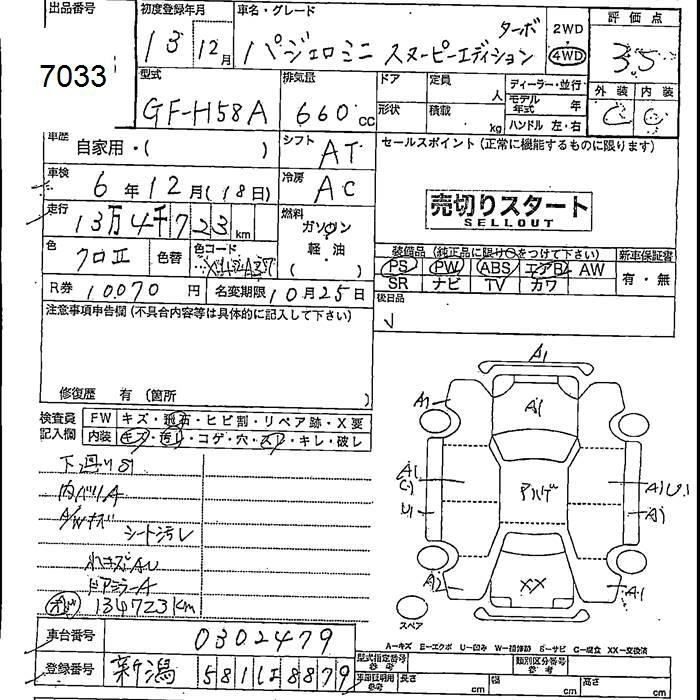 出品番号
7033
初度登録年月
13年 12月
車名・グレード
パジェロミニ スヌーピーエディション ターボ
2WD
4WD
評価点
3.5
外装 内装
C C
型式
GF-H58A
排気量
660cc
ドア 定員 人
形状 積載 kg
ディーラー・並行
モデル年式 年
ハンドル 左・右
車歴
自家用・( )
シフト
AT
車検
6年12月(18日)
冷房
AC
走行
13万4千723km
燃料
ガソリン
軽・油
( )
色
クロエ
色替
色コード
R券 10070円
名変期限 10月25日
セールスポイント(正常に機能するものに限ります)
売切りスタート
SELLOUT
装備品(純正品に限り○をつけて下さい)
新車保証書
PS PW ABS エアB AW
SR ナビ TV カワ
有・無
後日品
レ
注意事項申告欄(不具合内容等は具体的に記入して下さい)
修復歴 有(箇所 )
検査員記入欄
FW キズ・飛石・ヒビ割・リペア跡・X要
内装 キズ・汚レ・コゲ・穴・スレ・キレ・破レ
下廻りS
内ベリA
A/Wキズ
シート汚レ
ドアミラーA
134723km
車台番号 0302479
登録番号 新潟 581 は 8879
A1
A1
A1
A1
U1
アルゲ
A1U1
A1
A2
XX
A1
スペア
A-キズ E-エクボ U-凹み W-補修跡 S-サビ C-腐食 XX-交換済
型式指定番号
参考
類別区分番号
参考
車両証明用
参考
長さ cm
幅 cm
高さ cm